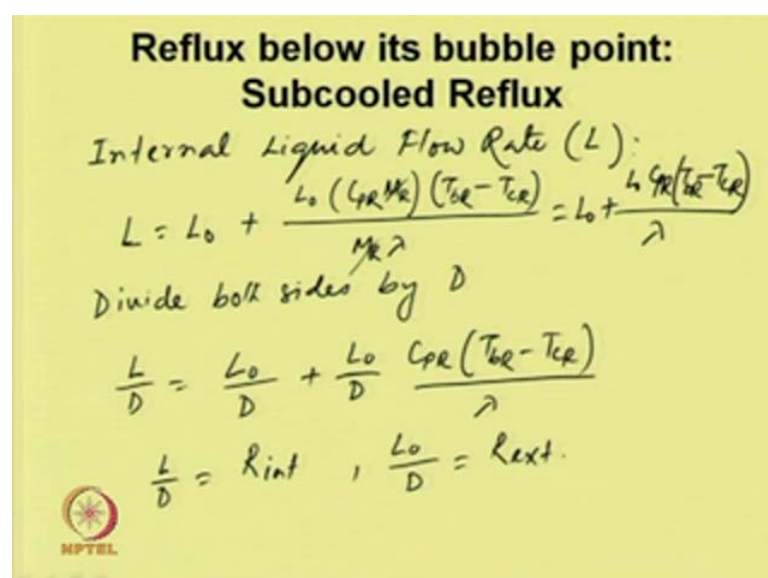 Reflux below its bubble point:
Subcooled Reflux
Internal Liquid Flow Rate (L):
L = L₀ + L₀ (C_PR M_R) (T_bR - T_CR) / M_R λ = L₀ + L₀ C_PR (T_bR - T_CR) / λ
Divide both sides by D
L/D = L₀/D + L₀/D C_PR (T_bR - T_CR) / λ
L/D = Rint , L₀/D = Rext.
NPTEL